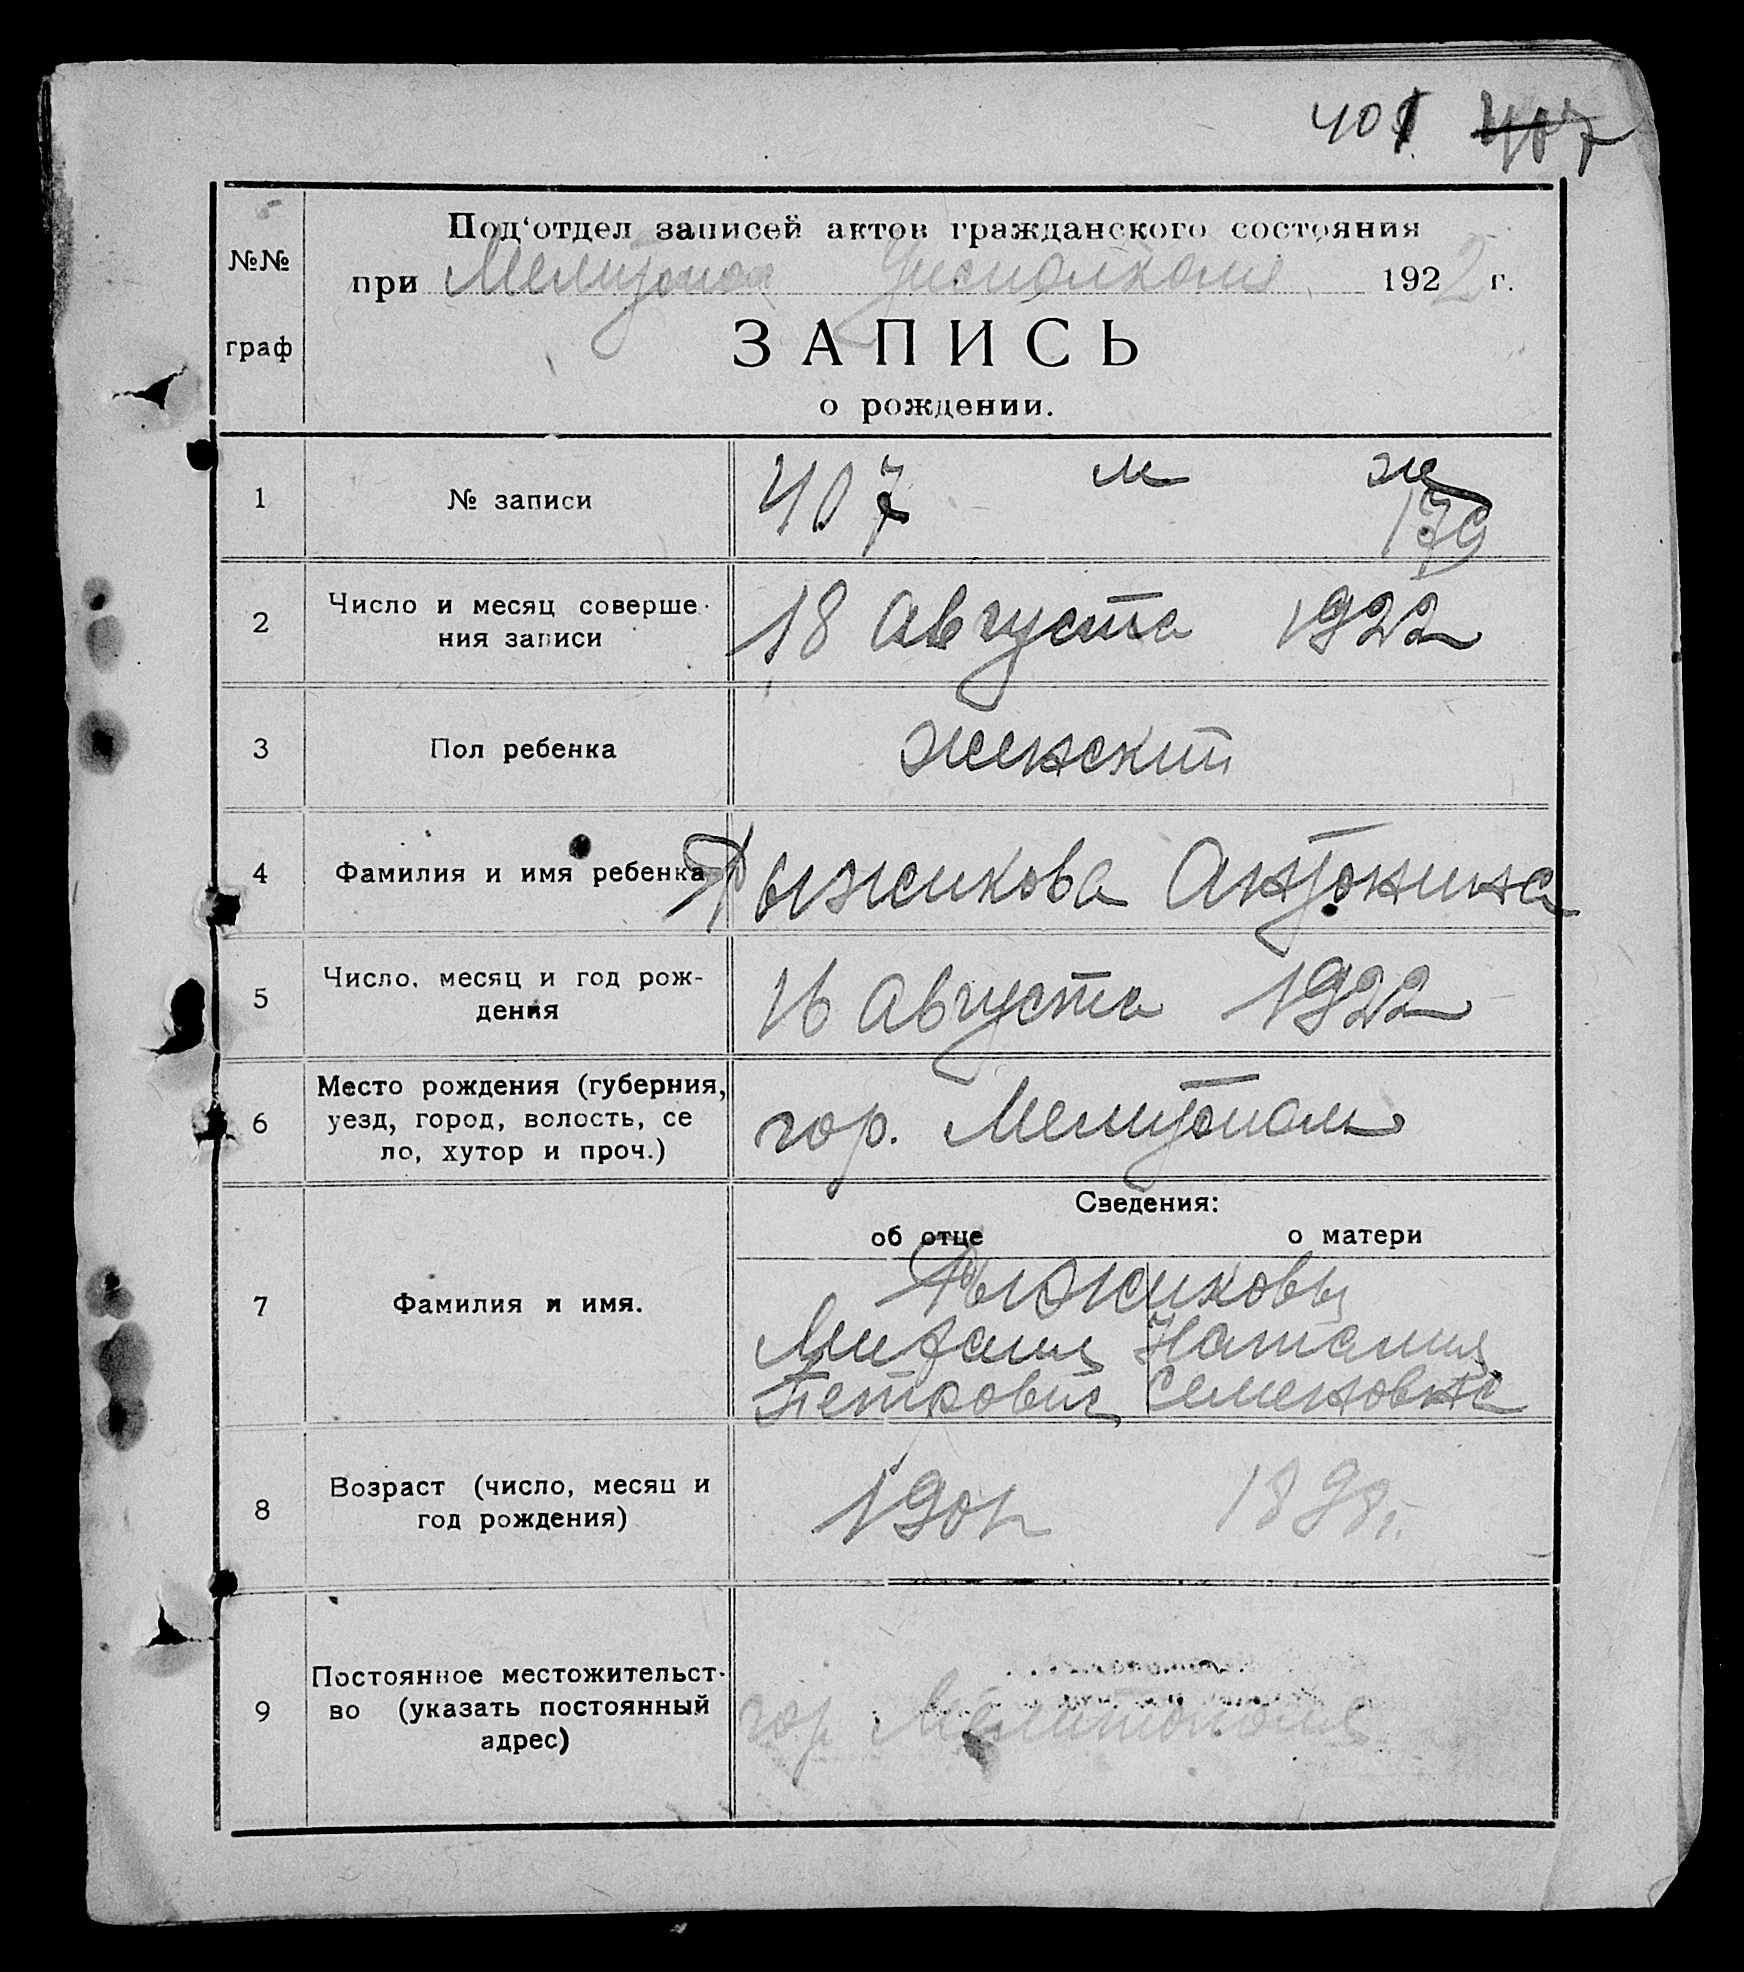 407
Под‘отдел записей актов гражданского состояния
№№ при Мелитопол Уисполкоме 1922 г.
граф ЗАПИСЬ
о рождении.
1 № записи 407 м ж
179
2 Число и месяц соверше-
ния записи 18 Августа 1922
3 Пол ребенка женский
4 Фамилия и имя ребенка Рыжикова Антонина
5 Число, месяц и год рож-
дения 16 Августа 1922
6 Место рождения (губерния,
уезд, город, волость, се
ло, хутор и проч.) гор. Мелитополь
Сведения:
об отце о матери
7 Фамилия и имя. Рыжиковы
Михаил Наталия
Петрович Семеновна
8 Возраст (число, месяц и
год рождения) 1901 1898 г.
9 Постоянное местожительст-
во (указать постоянный
адрес) гор. Мелитополь